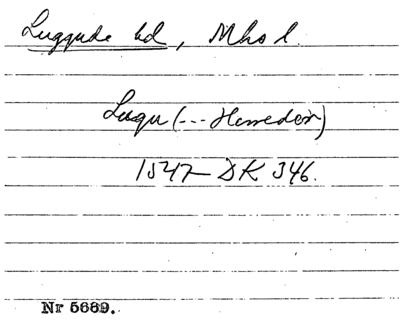 Luggude hd, Mhs l.
Lugu (--- Herreder)
1547 DK 346.
Nr 5669.